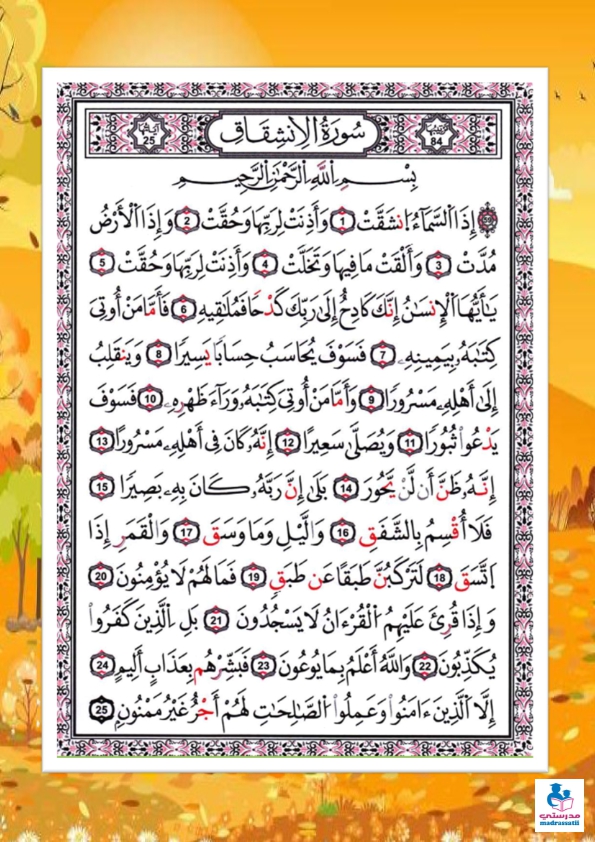 آيَاتُهَا 25
سُورَةُ اُلِانشِقَاقِ
84
بِسْمِ اِ۬للَّهِ اِ۬لرَّحْمَٰنِ اِ۬لرَّحِيمِ
إِذَا اَ۬لسَّمَآءُ اُ۪نشَقَّتْ 1 وَأَذِنَتْ لِرَبِّهَا وَحُقَّتْ 2 وَإِذَا اَ۬لْأَرْضُ
مُدَّتْ 3 وَأَلْقَتْ مَا فِيهَا وَتَخَلَّتْ 4 وَأَذِنَتْ لِرَبِّهَا وَحُقَّتْ 5
يَٰٓأَيُّهَا اَ۬لْإِنسَٰنُ إِنَّكَ كَادِحٌ إِلَىٰ رَبِّكَ كَدْحًا فَمُلَٰقِيهِ 6 فَأَمَّا مَنْ أُوتِيَ
كِتَٰبَهُۥ بِيَمِينِهِۦ 7 فَسَوْفَ يُحَاسَبُ حِسَابًا يَسِيرًا 8 وَيَنقَلِبُ
إِلَىٰٓ أَهْلِهِۦ مَسْرُورًا 9 وَأَمَّا مَنْ أُوتِيَ كِتَٰبَهُۥ وَرَآءَ ظَهْرِهِۦ 10 فَسَوْفَ
يَدْعُوا۟ ثُبُورًا 11 وَيُصَلَّىٰ سَعِيرًا 12 إِنَّهُۥ كَانَ فِىٓ أَهْلِهِۦ مَسْرُورًا 13
إِنَّهُۥ ظَنَّ أَن لَّنْ يَّحُورَ 14 بَلَىٰٓ إِنَّ رَبَّهُۥ كَانَ بِهِۦ بَصِيرًا 15
فَلَآ أُقْسِمُ بِالشَّفَقِ 16 وَالَّيْلِ وَمَا وَسَقَ 17 وَالْقَمَرِ إِذَا
اَ۪تَّسَقَ 18 لَتَرْكَبُنَّ طَبَقًا عَن طَبَقٍ 19 فَمَا لَهُمْ لَا يُؤْمِنُونَ 20
وَإِذَا قُرِئَ عَلَيْهِمُ اُ۬لْقُرْءَانُ لَا يَسْجُدُونَ 21 بَلِ اِ۬لَّذِينَ كَفَرُوا۟
يُكَذِّبُونَ 22 وَاللَّهُ أَعْلَمُ بِمَا يُوعُونَ 23 فَبَشِّرْهُم بِعَذَابٍ أَلِيمٍ 24
إِلَّا اَ۬لَّذِينَ ءَامَنُوا۟ وَعَمِلُوا۟ اُ۬لصَّٰلِحَٰتِ لَهُمْ أَجْرٌ غَيْرُ مَمْنُونٍ 25
مدرستي
madrassatii